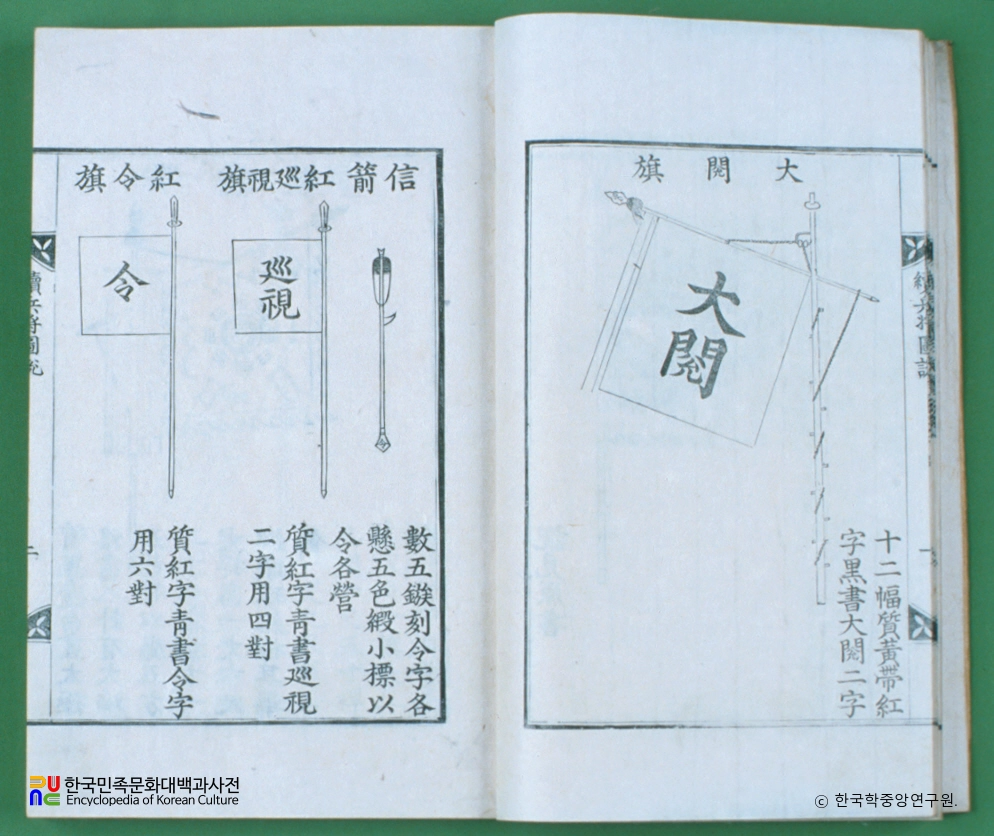 大閱旗
大閱
十二幅質黃帶紅
字黑書大閱二字
續兵將圖說
一
信箭
數五鏃刻令字各
懸五色緞小標以
令各營
紅巡視旗
巡視
質紅字靑書巡視
二字用四對
紅令旗
令
質紅字靑書令字
用六對
續兵將圖說
한국민족문화대백과사전
Encyclopedia of Korean Culture
ⓒ 한국학중앙연구원.